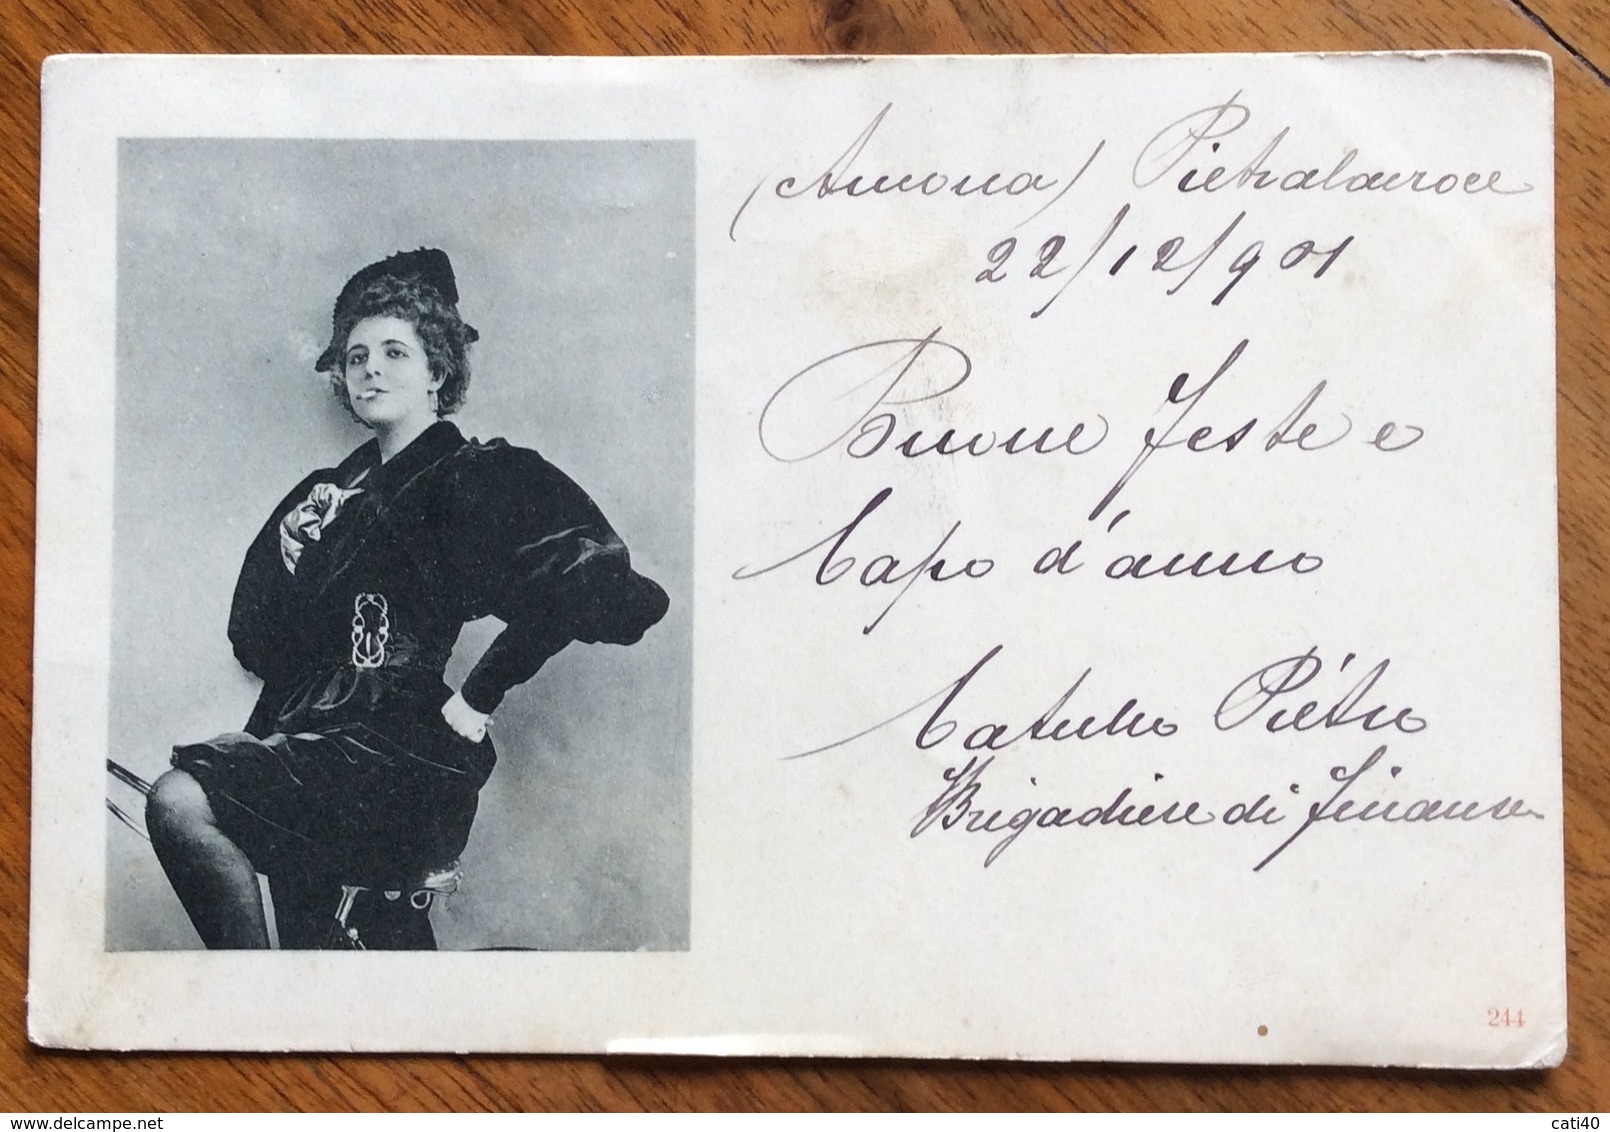 (Ancona) Pietralacroce
22/12/901
Buone Feste e
Capo d'anno
Catullo Piétro
Brigadiere di Finanse
244
www.delcampe.net
cati40